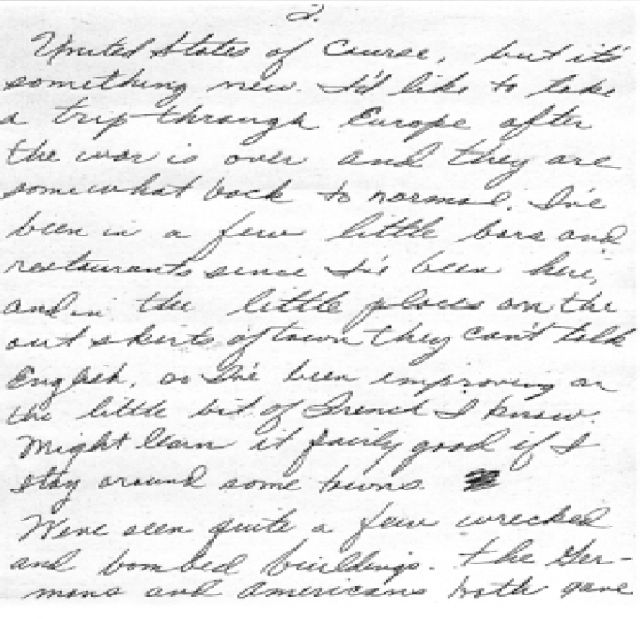 2.
United States of Course, but it's
something new. I'd like to take
a trip through Europe after
the war is over and they are
somewhat back to normal. I've
been in a few little bars and
restaurants since I've been here,
and in the little places on the
out skirts of town they can't talk
English, so I've been improving on
the little bit of French I know.
Might learn it fairly good if I
stay around some towns.
We've seen quite a few wrecked
and bombed buildings. The Ger-
mans and Americans both gave